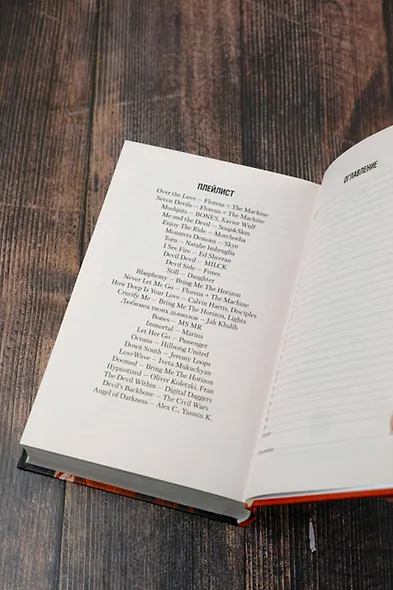 ПЛЕЙЛИСТ
Over the Love — Florens + The Machine
Seven Devils — Florens + The Machine
Moshpits — BONES, Xavier Wulf
Me and the Devil — Soap&Skin
Enjoy The Ride — Morcheeba
Monsters Demons — Skye
Torn — Natalie Imbruglia
I See Fire — Ed Sheeran
Devil Devil — MILCK
Devil Side — Foxes
Still — Daughter
Blasphemy — Bring Me The Horizon
Never Let Me Go — Florens + The Machine
How Deep Is Your Love — Calvin Harris, Disciples
Crucify Me — Bring Me The Horizon, Lights
Любимец твоих дьяволов — Jah Khalib
Bones — MS MR
Immortal — Marina
Let Her Go — Passenger
Oceans — Hillsong United
Down South — Jeremy Loops
LoveWave — Iveta Mukuchyan
Doomed — Bring Me The Horizon
Hypnotized — Oliver Koletzki, Fran
The Devil Within — Digital Daggers
Devil's Backbone — The Civil Wars
Angel of Darkness — Alex C., Yasmin K.
ОГЛАВЛЕНИЕ